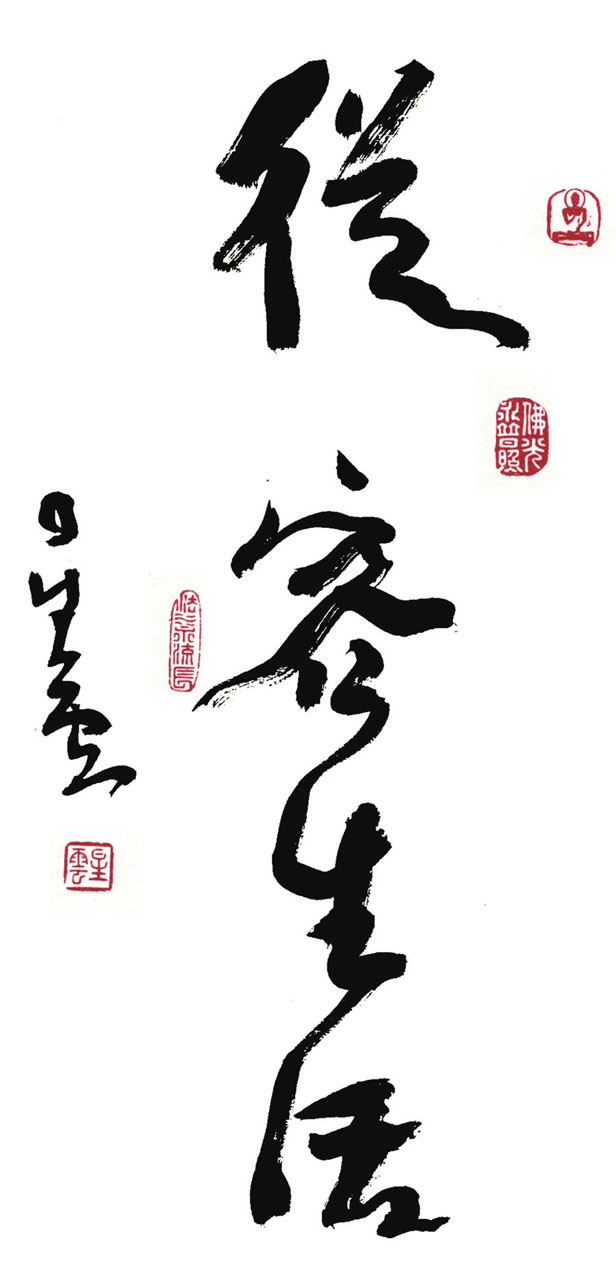 從容生活
佛光
普照
法水流長
星雲
星雲